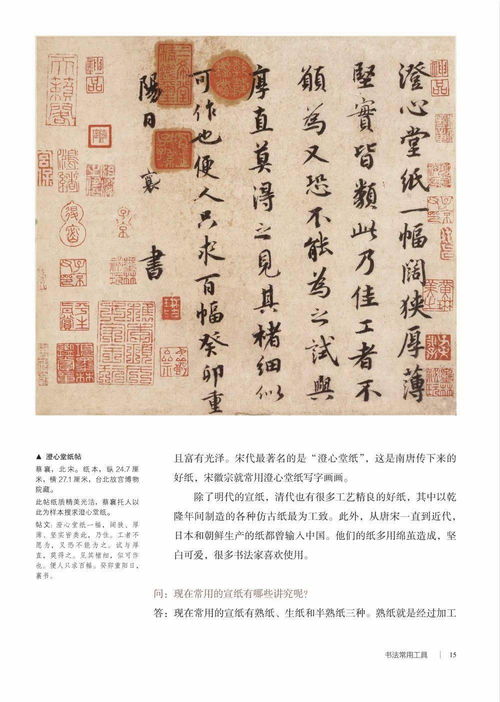 澄心堂纸一幅阔狭厚薄
堅實皆類此乃佳工者不
願為又恐不能為之試與
厚直莫得之見其楮細似
可作也便人只求百幅癸卯重
陽日襄書
▲ 澄心堂纸帖
蔡襄,北宋。纸本,纵 24.7 厘
米,横 27.1 厘米,台北故宫博物
院藏。
此帖纸质精美光洁,蔡襄托人以
此为样本搜求澄心堂纸。
帖文:澄心堂纸一幅,阔狭、厚
薄、坚实皆类此,乃佳。工者不
愿为,又恐不能为之。试与厚
直,莫得之。见其楮细,似可作
也。便人只求百幅。癸卯重阳日,
襄书。
且富有光泽。宋代最著名的是“澄心堂纸”,这是南唐传下来的
好纸,宋徽宗就常用澄心堂纸写字画画。
除了明代的宣纸,清代也有很多工艺精良的好纸,其中以乾
隆年间制造的各种仿古纸最为工致。此外,从唐宋一直到近代,
日本和朝鲜生产的纸都曾输入中国。他们的纸多用绵茧造成,坚
白可爱,很多书法家喜欢使用。
问:现在常用的宣纸有哪些讲究呢?
答:现在常用的宣纸有熟纸、生纸和半熟纸三种。熟纸就是经过加工
书法常用工具 | 15